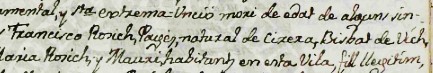 umental, y sta extrema Unció morí de edat de alguns sin-
s Francisco Rosich, Pagès, natural de Cirera, Bisbat de Vich,
Maria Rosich, y Mauri habitants en esta Vila, fill llegitim,